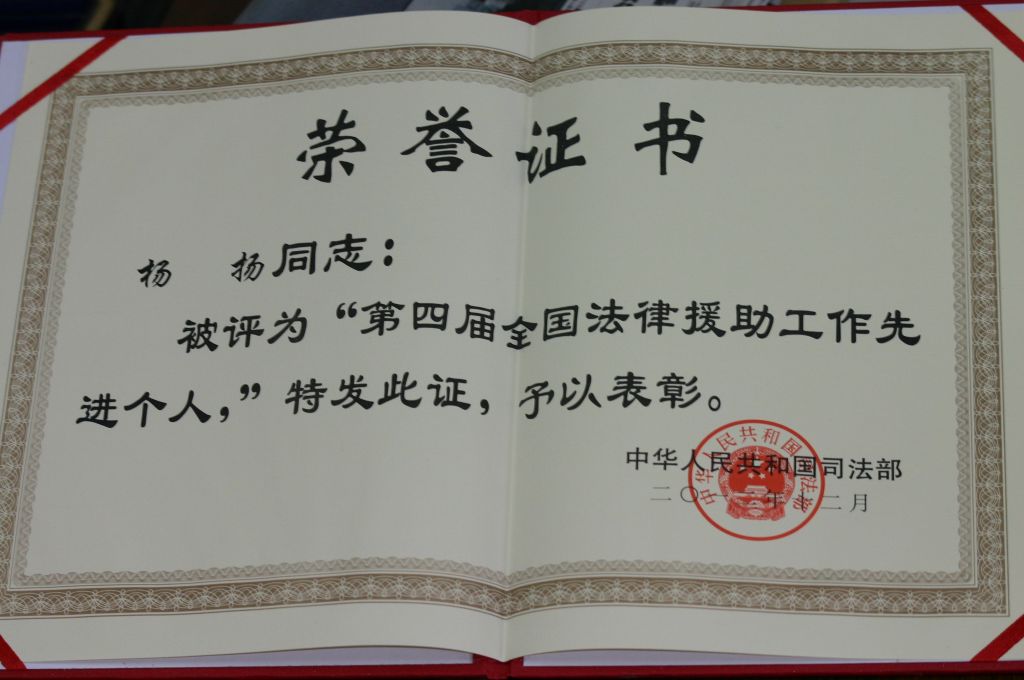 荣誉证书
杨 扬同志：
被评为“第四届全国法律援助工作先
进个人，”特发此证，予以表彰。
中华人民共和国司法部
二〇一二年十二月
中华人民共和国司法部